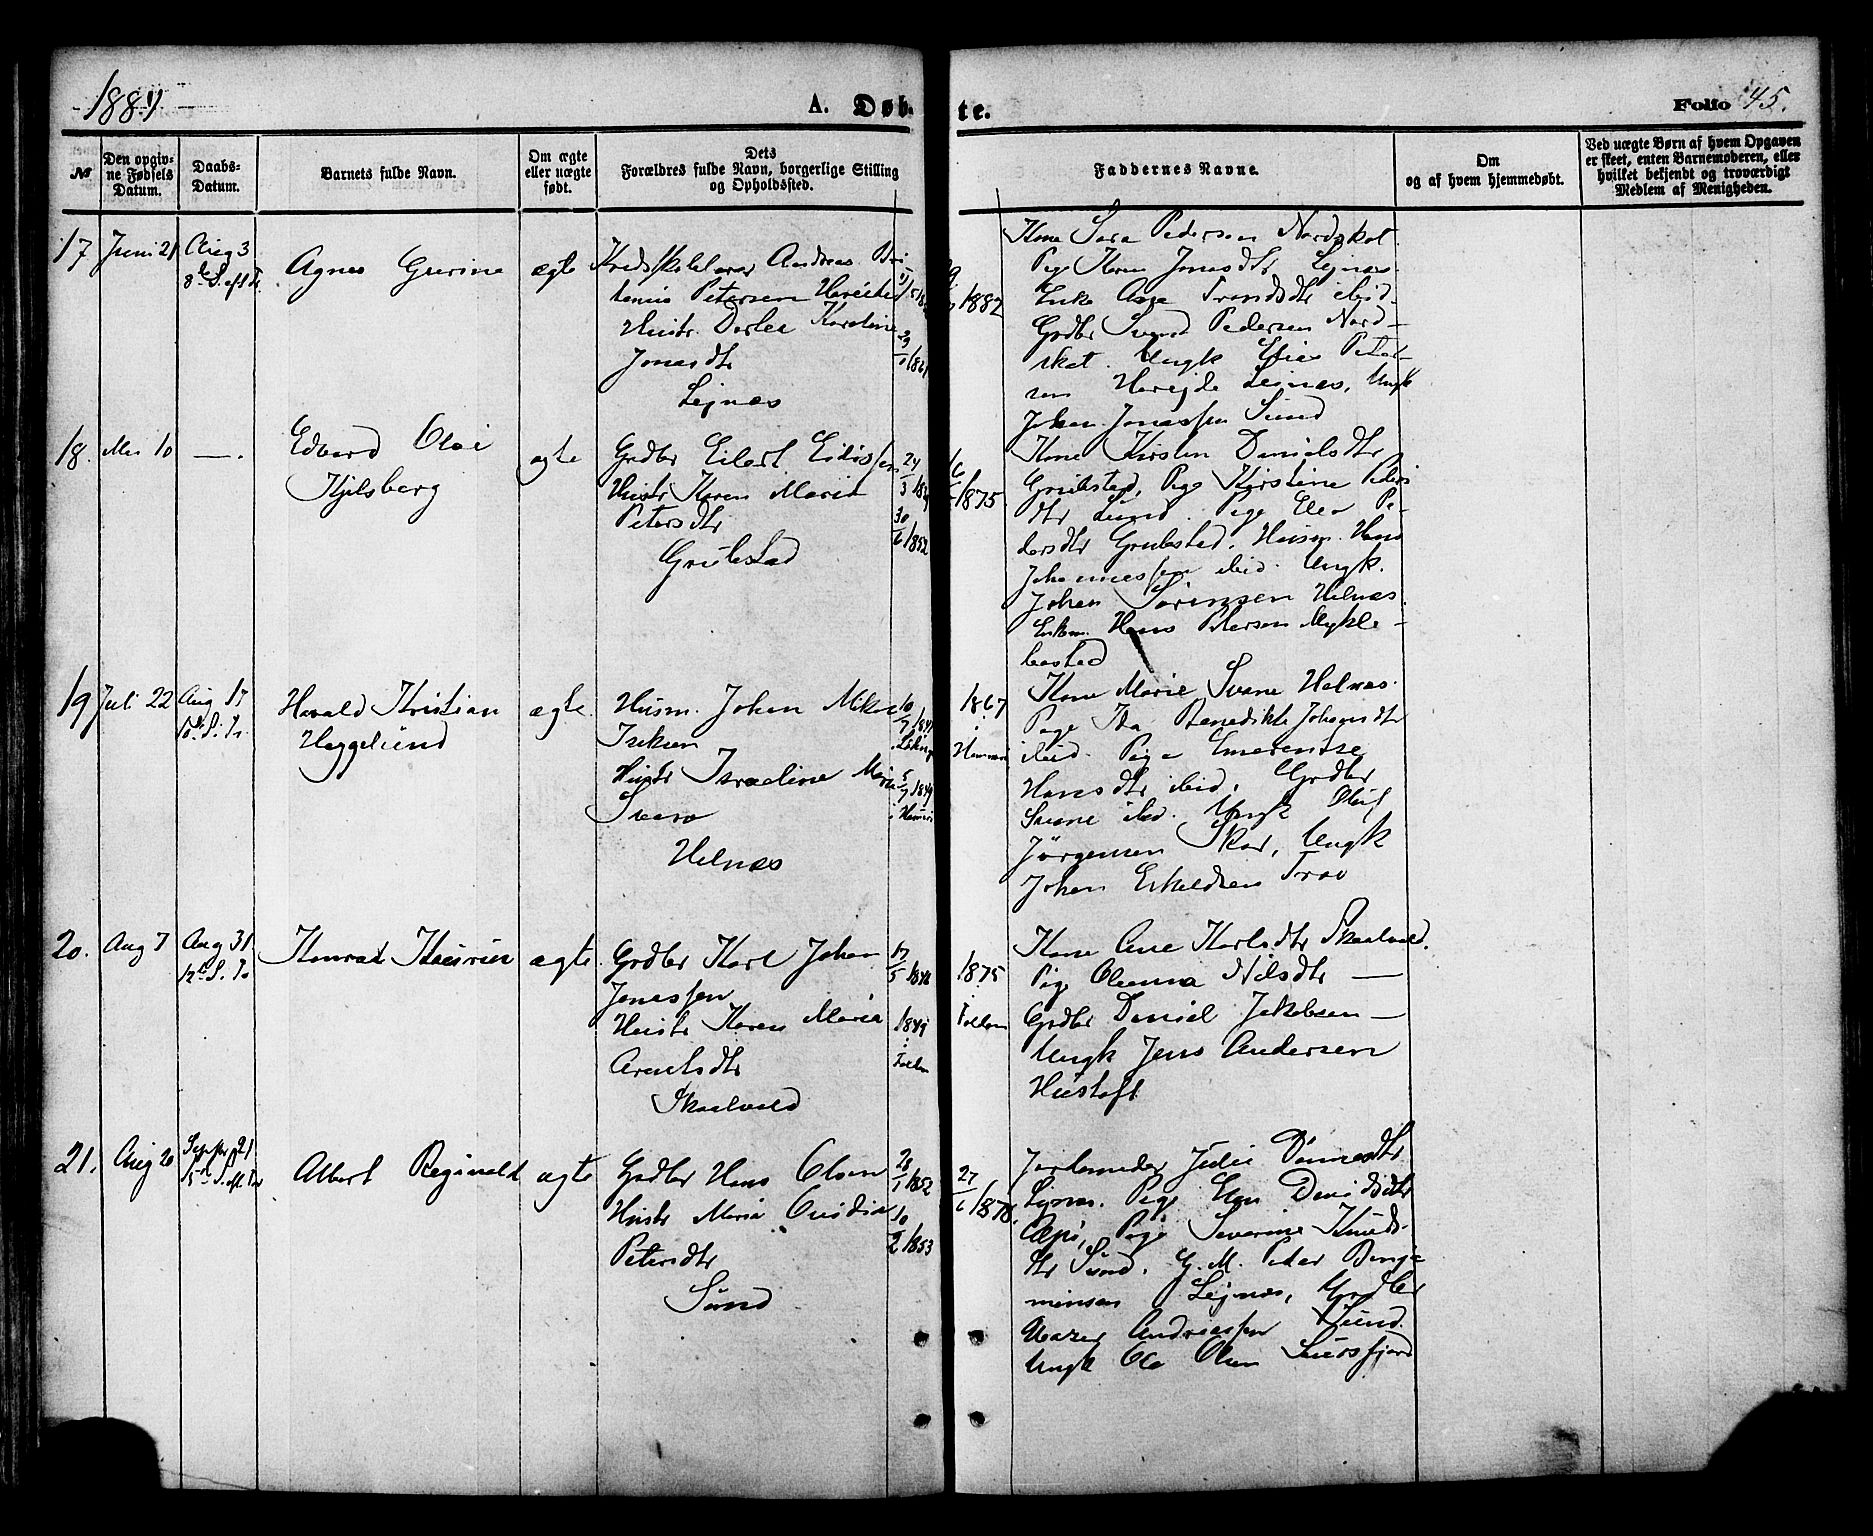 1884
A. Døb-
te.
Folio 45.
№
Den opgiv-
ne Fødsels
Datum.
Daabs-
Datum.
Barnets fulde Navn.
Om ægte
eller uægte
født.
Dets
Forældres fulde Navn, borgerlige Stilling
og Opholdssted.
Faddernes Navne.
Om
og af hvem hjemmedøbt.
Ved uægte Børn af hvem Opgaven
er skeet, enten Barnemoderen, eller
hvilket bekjendt og troværdigt
Medlem af Menigheden.
17
Juni 21
Aug 3
8de S. eft Tr.
Agnes Gurine
ægte
Kredsskolelærer Andreas
Petersen
Hustr. Dortea Karoline
Jonasdtr
Lejnæs
1882
Kone Sara Pedersen Nordskot
Pige Karen Jonasdtr Lejnæs
Enke Ane Trondsdtr ibid
Grdbr Svend Pedersen Nord-
skot. Ungk Elias Peter-
sen Lejnæs, Ungk
Johan Jonassen Sund
18.
Mai 10
—
Edvard Olai
Kjelsberg
ægte
Grdbr Eilert Eidissen
Hustr Karen Maria
Petersdtr
Grubstad
24/3
30/6 1852
1875
Kone Kirsten Danielsdtr
Grubstad, Pige Kirstine Peders
dtr Sund. Pige Elen Pe-
dersdtr Grubstad. Husm. Hans
Johannessen ibid. Ungk.
Johan Sörensen Helnæs.
Enkem. Hans Petersen Mykle-
bostad
19
Juli 22
Aug 17
10de S. Tr.
Harald Kristian
Heggelund
ægte
Husm. Johan Mikal
Eriksen
Hustr Israeline Marie
Svane
Helnæs
5/7 1849
1867
i
Kone Marie Svane Helnæs
Pige Ida Benedikte Johansdtr
ibid. Pige Emerense
Hansdtr ibid, Grdbr
Svane ibid. Ungk Oluf
Jörgensen Skar, Ungk
Johan Eskildsen
20.
Aug 7
Aug 31.
12te S. Tr
Konrad
ægte
Grdbr Karl Johan
Jonassen
Hustr Karen Maria
Arentsdtr
Skaalvold
17/5
1849
i
Folden
1875
i
Folden
Kone Ane Karlsdtr Skaalvold.
Pige Olianna Nilsdtr —
Grdbr Daniel Jakobsen —
Ungk Jens Andersen
Hustoft
21.
Aug 20
Septbr 21
15de S. eft Tr
Albert Reginald
ægte
Grdbr Hans Olsen
Hustr Maria Ovidia
Petersdtr
Sund
28/1 1852
10/2 1853
27/6 1878.
Jordemoder Julie
Lejnæs. Pige Elen Davidsdtr
Pige Severine Knuds-
dtr Sund. G. M. Peder Benja-
minsen Lejnæs, Grdbr
Andreassen Sund.
Ungk Ole Olsen